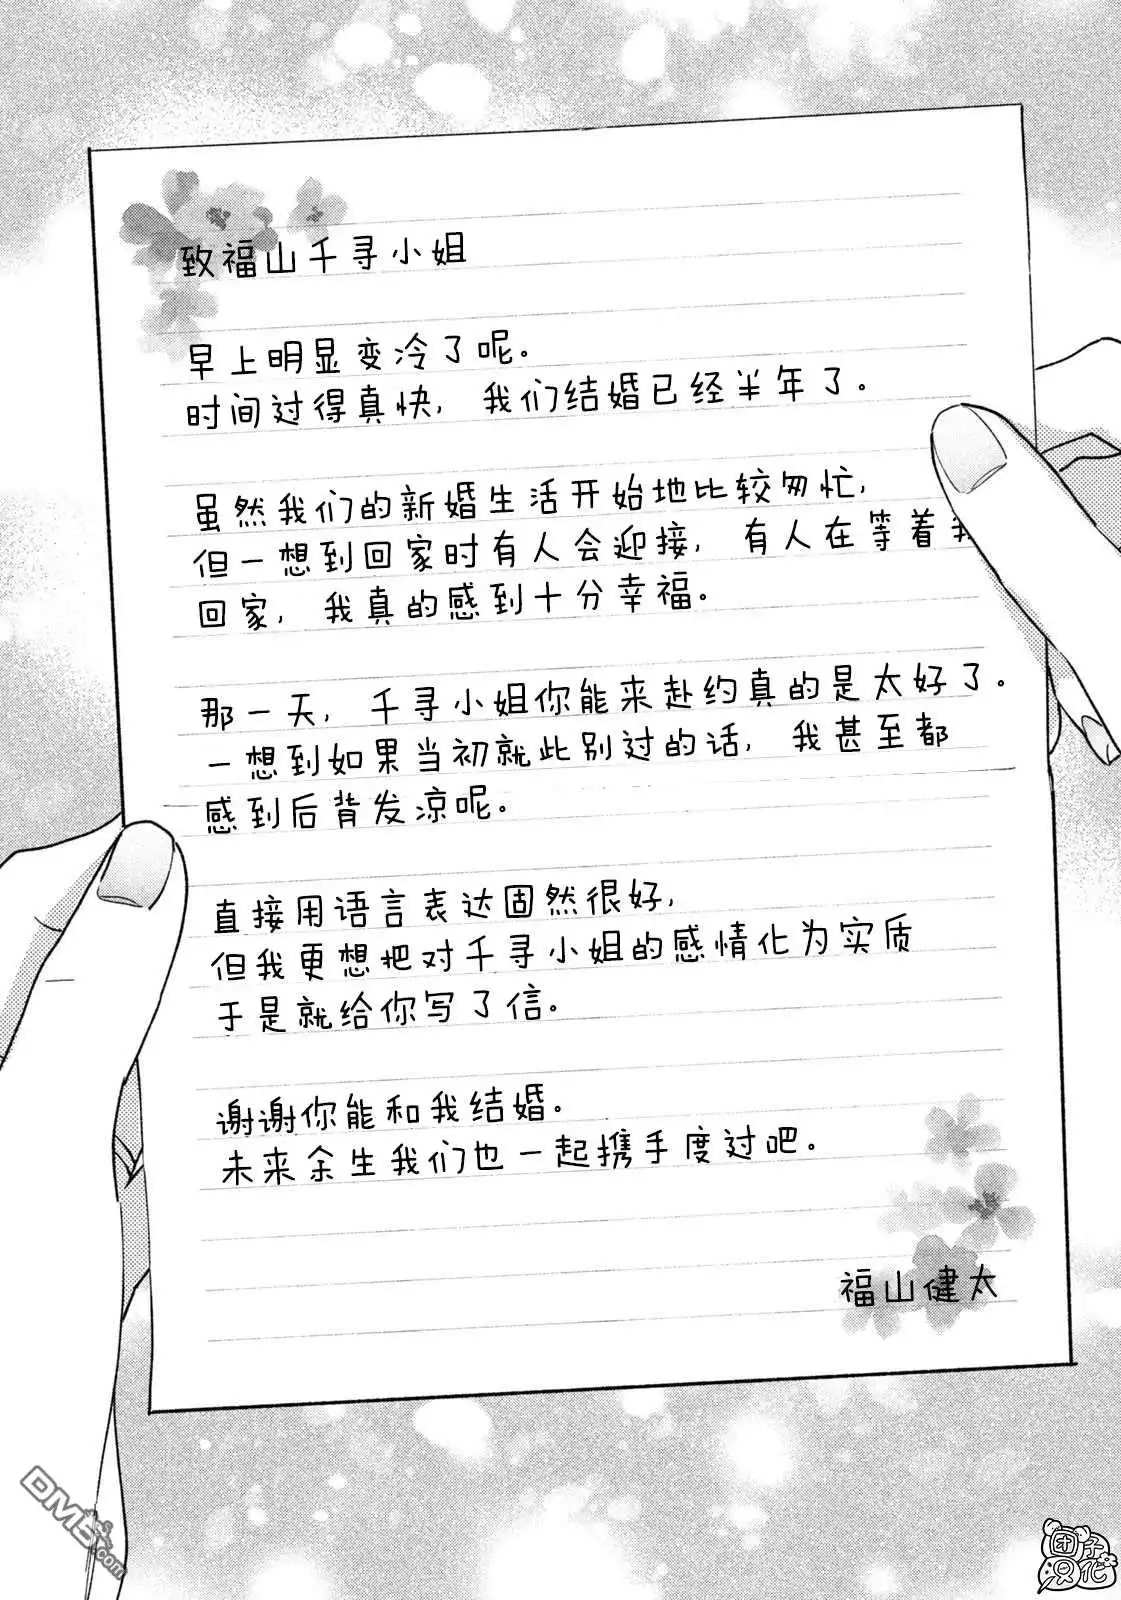 致福山千寻小姐
早上明显变冷了呢。
时间过得真快，我们结婚已经半年了。
虽然我们的新婚生活开始地比较匆忙，
但一想到回家时有人会迎接，有人在等着我
回家，我真的感到十分幸福。
那一天，千寻小姐你能来赴约真的是太好了。
一想到如果当初就此别过的话，我甚至都
感到后背发凉呢。
直接用语言表达固然很好，
但我更想把对千寻小姐的感情化为实质
于是就给你写了信。
谢谢你能和我结婚。
未来余生我们也一起携手度过吧。
福山健太
DMB5.com
团子汉化